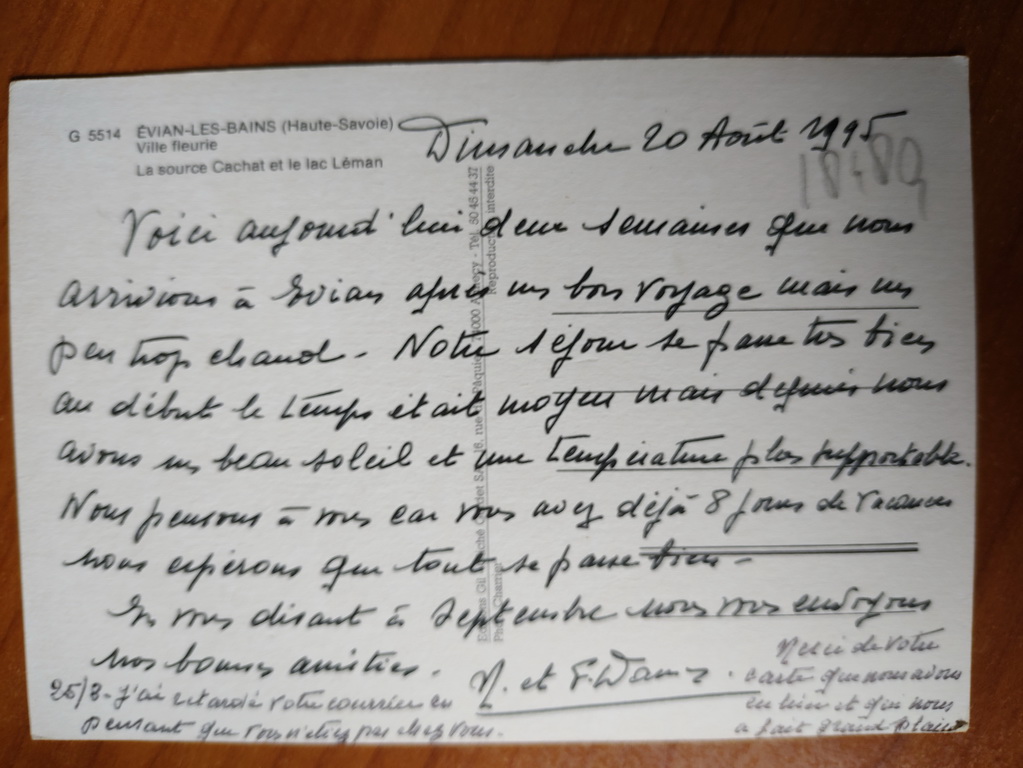 G 5514 ÉVIAN-LES-BAINS (Haute-Savoie)
Ville fleurie
La source Cachat et le lac Léman
Dimanche 20 Août 1995
Voici aujourd'hui deux semaines que nous
arrivions à Evian après un bon voyage mais un
peu trop chaud - Notre séjour se passe très bien
au début le temps était moyen mais depuis nous
avons un beau soleil et une température plus supportable.
Nous pensons à vous car vous avez déjà 8 jours de vacances
nous espérons que tout se passe bien -
En vous disant à Septembre nous vous envoyons
nos bonnes amitiés.
M. et
25/8 - J'ai retardé votre courrier en
pensant que vous n'étiez pas chez vous.
Merci de votre
carte que nous avons
eu hier et qui nous
a fait grand plaisir
Reproduction interdite